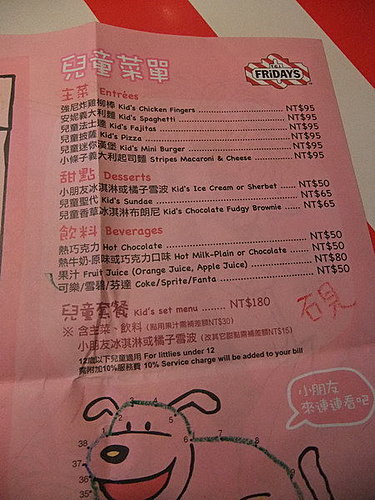 兒童菜單
FRIDAYS
主菜 Entrées
強尼炸雞柳棒 Kid's Chicken Fingers NT$95
安妮義大利麵 Kid's Spaghetti NT$95
兒童法士達 Kid's Fajitas NT$95
兒童披薩 Kid's Pizza NT$95
兒童迷你漢堡 Kid's Mini Burger NT$95
小條子義大利起司麵 Stripes Macaroni & Cheese NT$95
甜點 Desserts
小朋友冰淇淋或橘子雪波 Kid's Ice Cream or Sherbet NT$50
兒童聖代 Kid's Sundae NT$65
兒童香草冰淇淋布朗尼 Kid's Chocolate Fudgy Brownie NT$65
飲料 Beverages
熱巧克力 Hot Chocolate NT$50
熱牛奶-原味或巧克力口味 Hot Milk-Plain or Chocolate NT$50
果汁 Fruit Juice (Orange Juice, Apple Juice) NT$80
可樂/雪碧/芬達 Coke/Sprite/Fanta NT$50
兒童套餐 Kid's set menu NT$180
※ 含主菜、飲料 (點用果汁需補差額NT$30)
小朋友冰淇淋或橘子雪波 (改其它甜點需補差額NT$15)
12歲以下兒童適用 For littlies under 12
需附加10%服務費 10% Service charge will be added to your bill
小朋友
來連連看吧
1
2
4
5
6
7
8
38
37
36
35